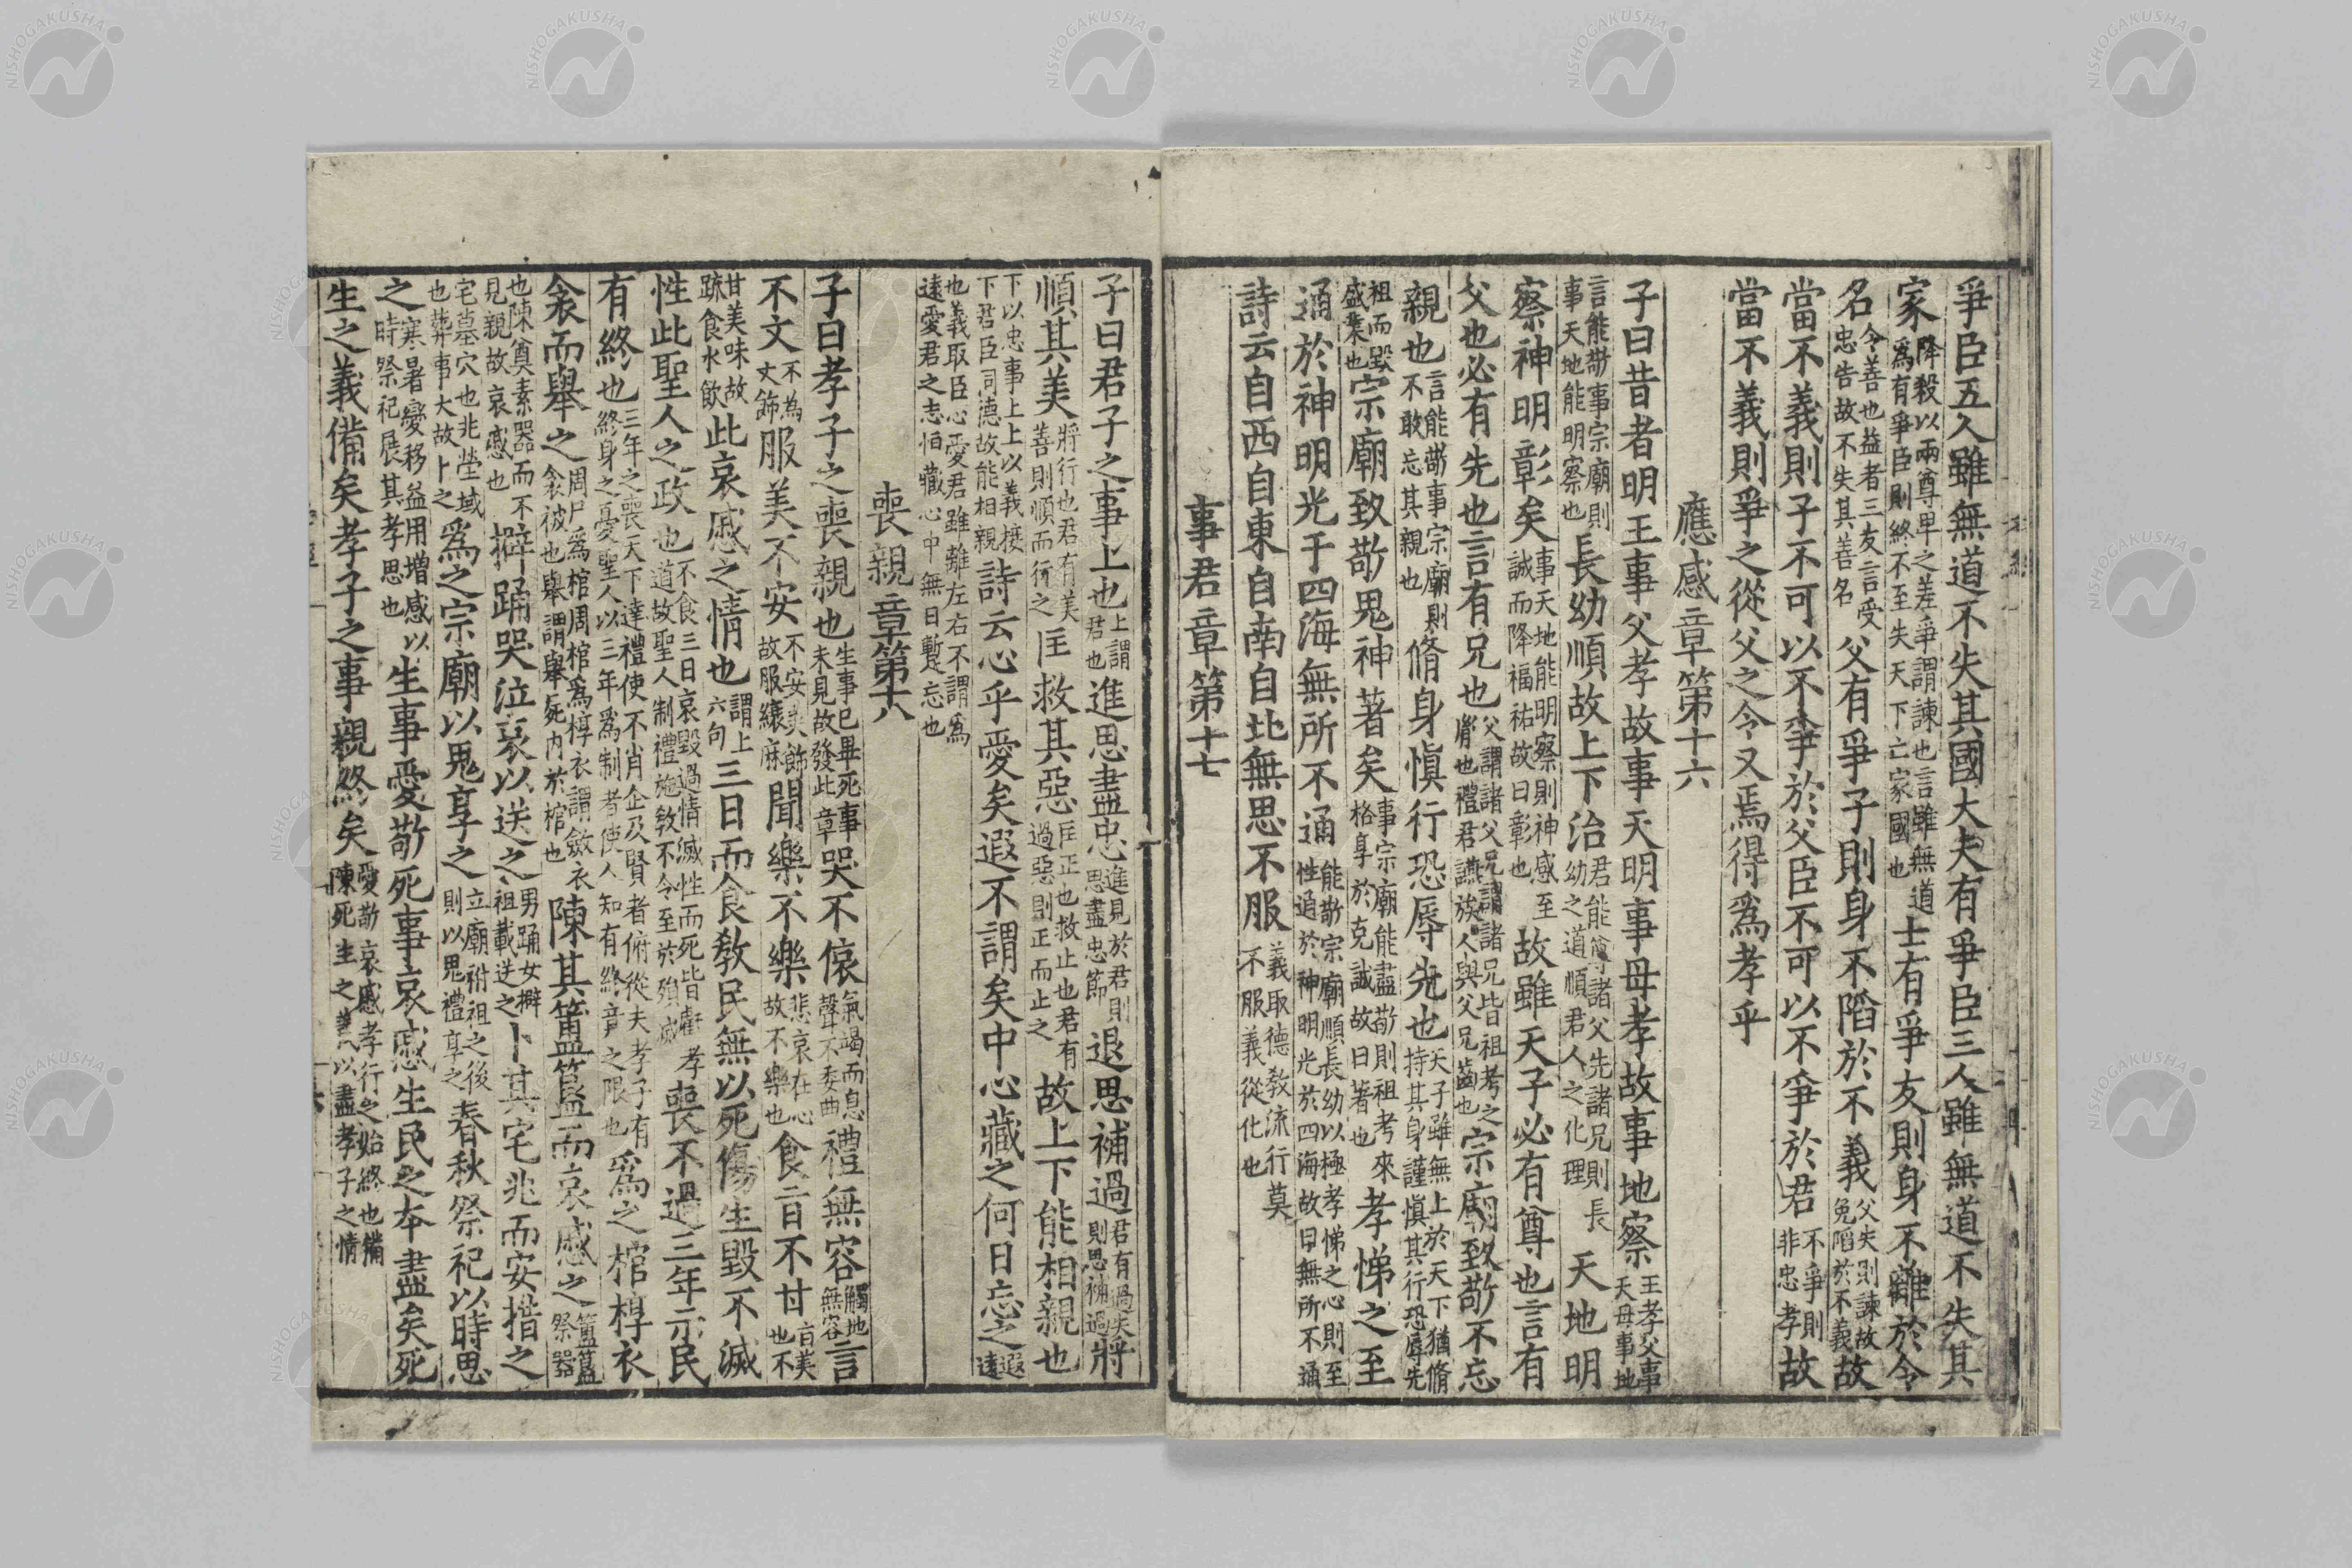 爭臣五人雖無道不失其國大夫有爭臣三人雖無道不失其
家降殺以兩尊卑之差爭謂諫也言雖無道爲有爭臣則終不至失天下亡家國也士有爭友則身不離於令
名令善也益者三友言受忠告故不失其善名父有爭子則身不陷於不義父失則諫故免陷於不義故
當不義則子不可以不爭於父臣不可以不爭於君不爭則非忠孝故
當不義則爭之從父之令又焉得爲孝乎
應感章第十六
子曰昔者明王事父孝故事天明事母孝故事地察王者父事天母事地
言能敬事宗廟則事天地能明察也長幼順故上下治君能尊諸父先諸兄則長幼之道順君人之化理天地明
察神明彰矣事天地能明察則神感至誠而降福祐故曰彰也故雖天子必有尊也言有
父也必有先也言有兄也父謂諸父兄謂諸兄皆祖考之胤也禮君讌族人與父兄齒也宗廟致敬不忘
親也言能敬事宗廟則不敢忘其親也脩身慎行恐辱先也天子雖無上於天下猶脩持其身謹慎其行恐辱先
祖而毀盛業也宗廟致敬鬼神著矣事宗廟能盡敬則祖考來格享於克誠故曰著也孝悌之至
通於神明光于四海無所不通能敬宗廟順長幼以極孝悌之心則至性通於神明光於四海故曰無所不通
詩云自西自東自南自北無思不服義取德教流行莫不服義從化也
事君章第十七
子曰君子之事上也上謂君也進思盡忠進見於君則思盡忠節退思補過君有過失則思補過將
順其美將行也君有美善則順而行之匡救其惡匡正也救止也君有過惡則正而止之故上下能相親也
下以忠事上上以義接下君臣同德故能相親詩云心乎愛矣遐不謂矣中心藏之何日忘之遐遠
也義取臣心愛君雖離左右不謂爲遠愛君之志恒藏心中無日暫忘也
喪親章第十八
子曰孝子之喪親也生事已畢死事未見故發此章哭不偯氣竭而息聲不委曲禮無容觸地無容言
不文不為文飾服美不安不安美飾故服縗麻聞樂不樂悲哀在心故不樂也食旨不甘旨美也不
甘美味故䟽食水飲此哀慼之情也謂上六句三日而食教民無以死傷生毀不滅
性此聖人之政也不食三日哀毀過情滅性而死皆虧孝道故聖人制禮施教不令至於殞滅喪不過三年示民
有終也三年之喪天下達禮使不肖企及賢者俯從夫孝子有終身之憂聖人以三年爲制者使人知有終竟之限也爲之棺椁衣
衾而舉之周尸爲棺周棺爲椁衣謂斂衣衾被也舉謂舉死內於棺也陳其簠簋而哀慼之簠簋祭器
也陳奠素器而不見親故哀慼也擗踊哭泣哀以送之男踊女擗祖載送之卜其宅兆而安措之
宅墓穴也兆塋域也葬事大故卜之爲之宗廟以鬼享之立廟祔祖之後則以鬼禮享之春秋祭祀以時思
之寒暑變移益用增感以時祭祀展其孝思也生事愛敬死事哀慼生民之本盡矣死
生之義備矣孝子之事親終矣愛敬哀慼孝行之始終也備陳死生之義以盡孝子之情